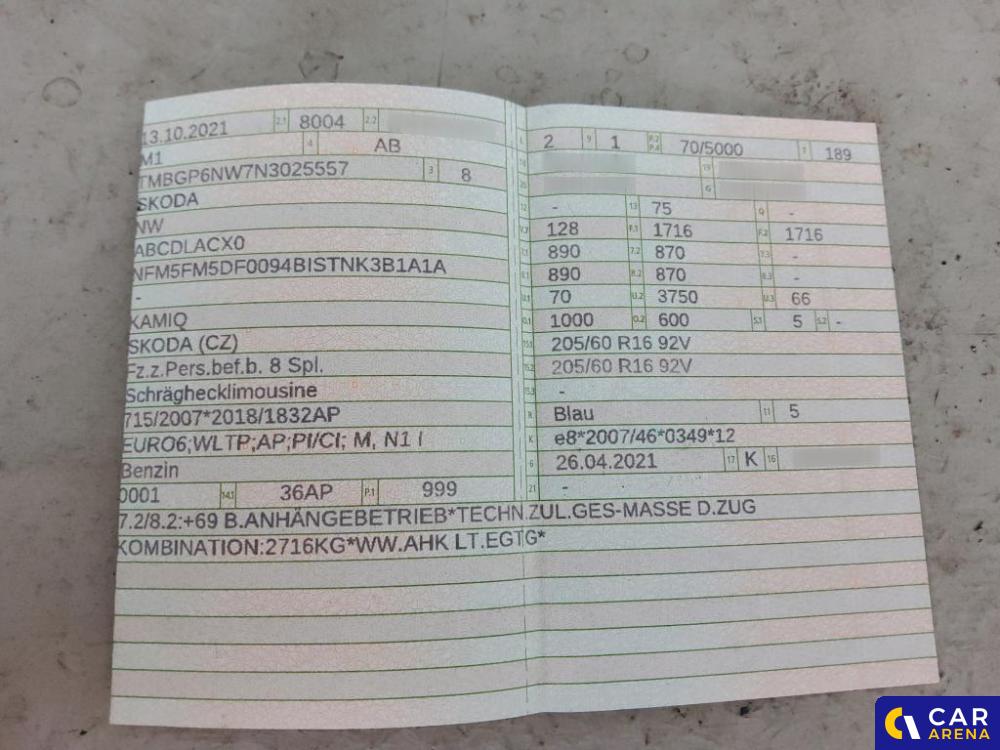 13.10.2021 2.1 8004 2.2
M1 4 AB
TMBGP6NW7N3025557 3 8
SKODA
NW
ABCDLACX0
NFM5FM5DF0094BISTNK3B1A1A
-
KAMIQ
SKODA (CZ)
Fz.z.Pers.bef.b. 8 Spl.
Schräghecklimousine
715/2007*2018/1832AP
EURO6;WLTP;AP;PI/CI; M, N1 I
Benzin
0001 14.1 36AP P.1 999
L 2 9 1 P.2 P.4 70/5000 T 189
18 19
20 G
12 - 13 75 Q -
V.7 128 F.1 1716 F.2 1716
7.1 890 7.2 870 7.3 -
8.1 890 8.2 870 8.3 -
U.1 70 U.2 3750 U.3 66
O.1 1000 O.2 600 S.1 5 S.2 -
15.1 205/60 R16 92V
15.2 205/60 R16 92V
15.3 -
R Blau 11 5
K e8*2007/46*0349*12
6 26.04.2021 17 K 16
21 -
7.2/8.2:+69 B.ANHÄNGEBETRIEB*TECHN.ZUL.GES-MASSE D.ZUG
KOMBINATION:2716KG*WW.AHK LT.EGTG*
CAR
ARENA